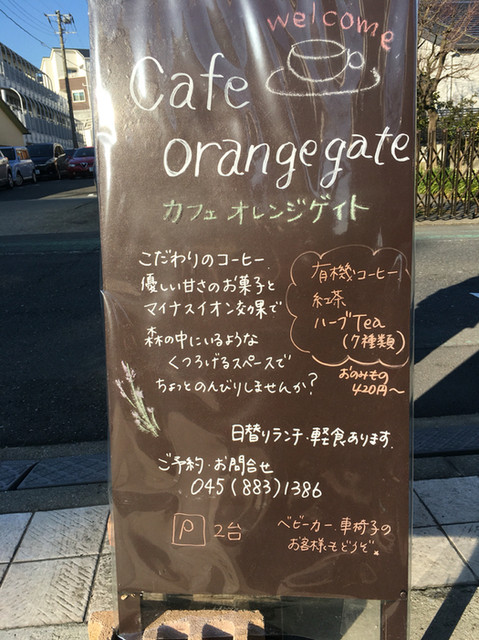 welcome
Cafe
orangegate
カフェ オレンジゲイト
こだわりのコーヒー
優しい甘さのお菓子と
マイナスイオン効果で
森の中にいるような
くつろげるスペースで
ちょっとのんびりしませんか?
有機コーヒー
紅茶
ハーブTea
(7種類)
おのみもの
420円~
日替りランチ・軽食あります
ご予約・お問合せ
045(883)1386
P 2台
ベビーカー、車椅子の
お客様もどうぞ。